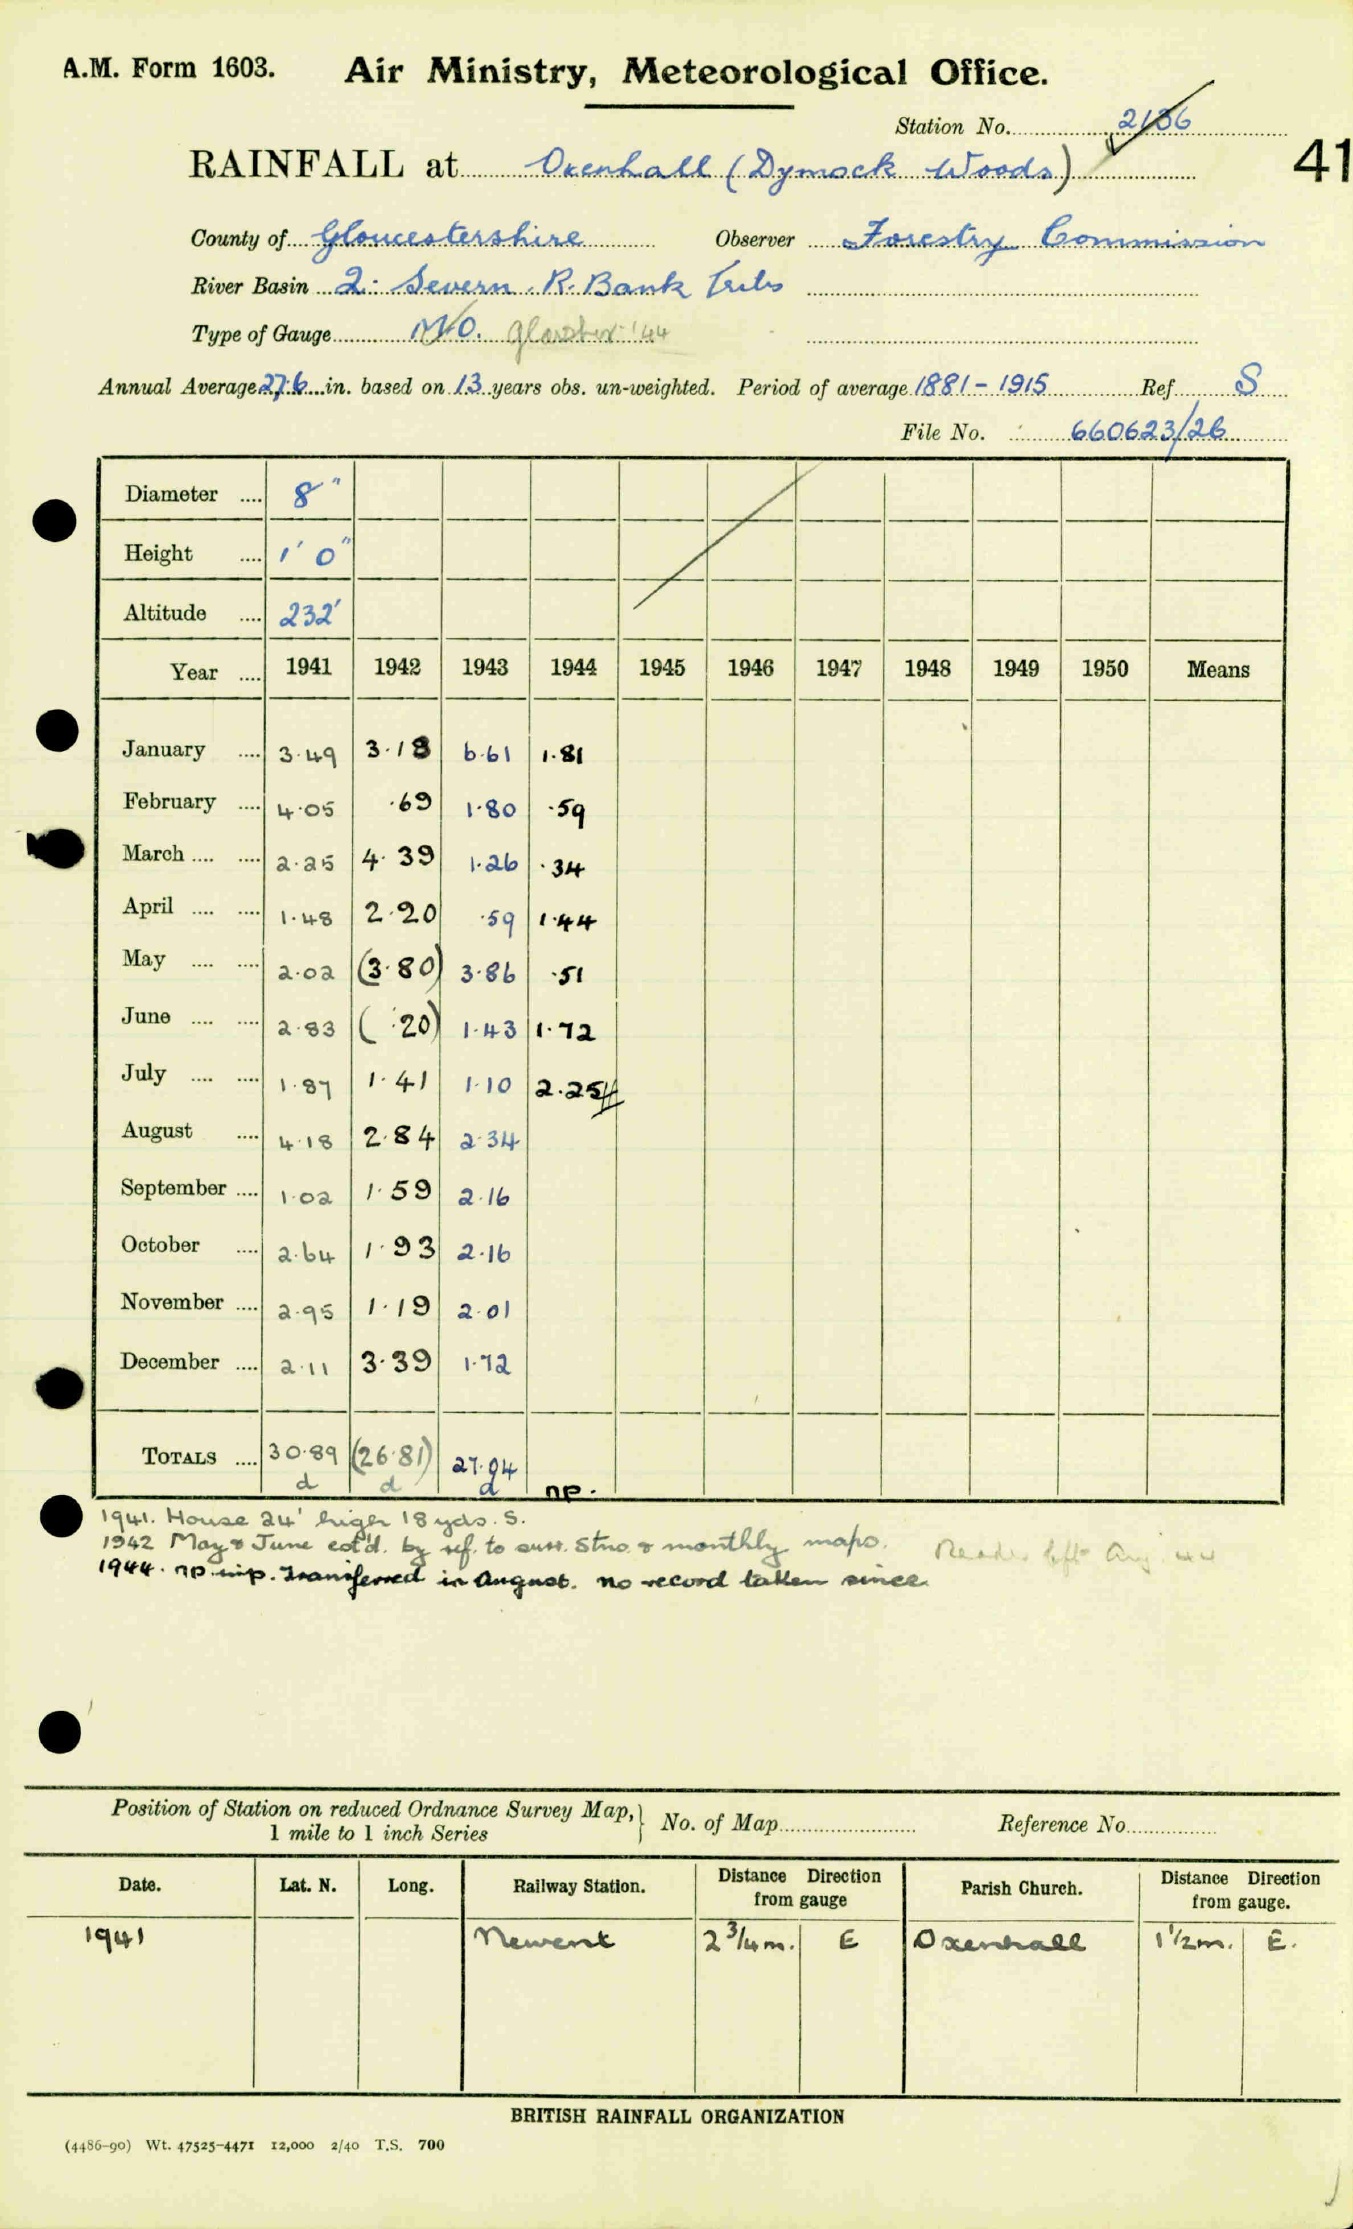 A.M. Form 1603. Air Ministry, Meteorological Office.
Station No. 2136
41
RAINFALL at Oxenhall (Dymock Woods)
County of Gloucestershire Observer Forestry Commission
River Basin 2. Severn. R. Bank Tribs
Type of Gauge M.O. Glo'ster '44
Annual Average 27.6 in. based on 13 years obs. un-weighted. Period of average 1881 - 1915 Ref S
File No. 660623/26
Diameter .... 8"
Height .... 1' 0"
Altitude .... 232'
Year .... 1941 1942 1943 1944 1945 1946 1947 1948 1949 1950 Means
January .... 3.49 3.18 6.61 1.81
February .... 4.05 .69 1.80 .59
March .... .... 2.25 4.39 1.26 .34
April .... .... 1.48 2.20 .59 1.44
May .... .... 2.02 (3.80) 3.86 .51
June .... .... 2.83 (.20) 1.43 1.72
July .... .... 1.87 1.41 1.10 2.25
August .... 4.18 2.84 2.34
September .... 1.02 1.59 2.16
October .... 2.64 1.93 2.16
November .... 2.95 1.19 2.01
December .... 2.11 3.39 1.72
TOTALS .... 30.89 (26.81) 27.04
d d d np.
1941. House 24' high 18 yds. S.
1942 May & June est'd. by ref. to surr. Stns. & monthly maps. Reader left Aug. 44
1944. np. inp. Transferred in August. no record taken since.
Position of Station on reduced Ordnance Survey Map, } No. of Map Reference No.
1 mile to 1 inch Series
Date. Lat. N. Long. Railway Station. Distance Direction from gauge Parish Church. Distance Direction from gauge.
1941 Newent 2 3/4 m. E Oxenhall 1 1/2 m. E.
BRITISH RAINFALL ORGANIZATION
(4486-90) Wt. 47525-4471 12,000 2/40 T.S. 700